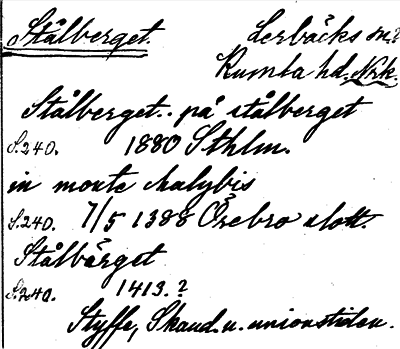 Stålberget. Lerbäcks sn?
Kumla hd. Nrk.
Stålberget.. på stålberget
S.240. 1880 Sthlm.
in monte chalybis
S.240. 7/5 1388 Örebro slott.
Stålbärget
S.240. 1413.?
Styffe, Skand. u. unionstiden.